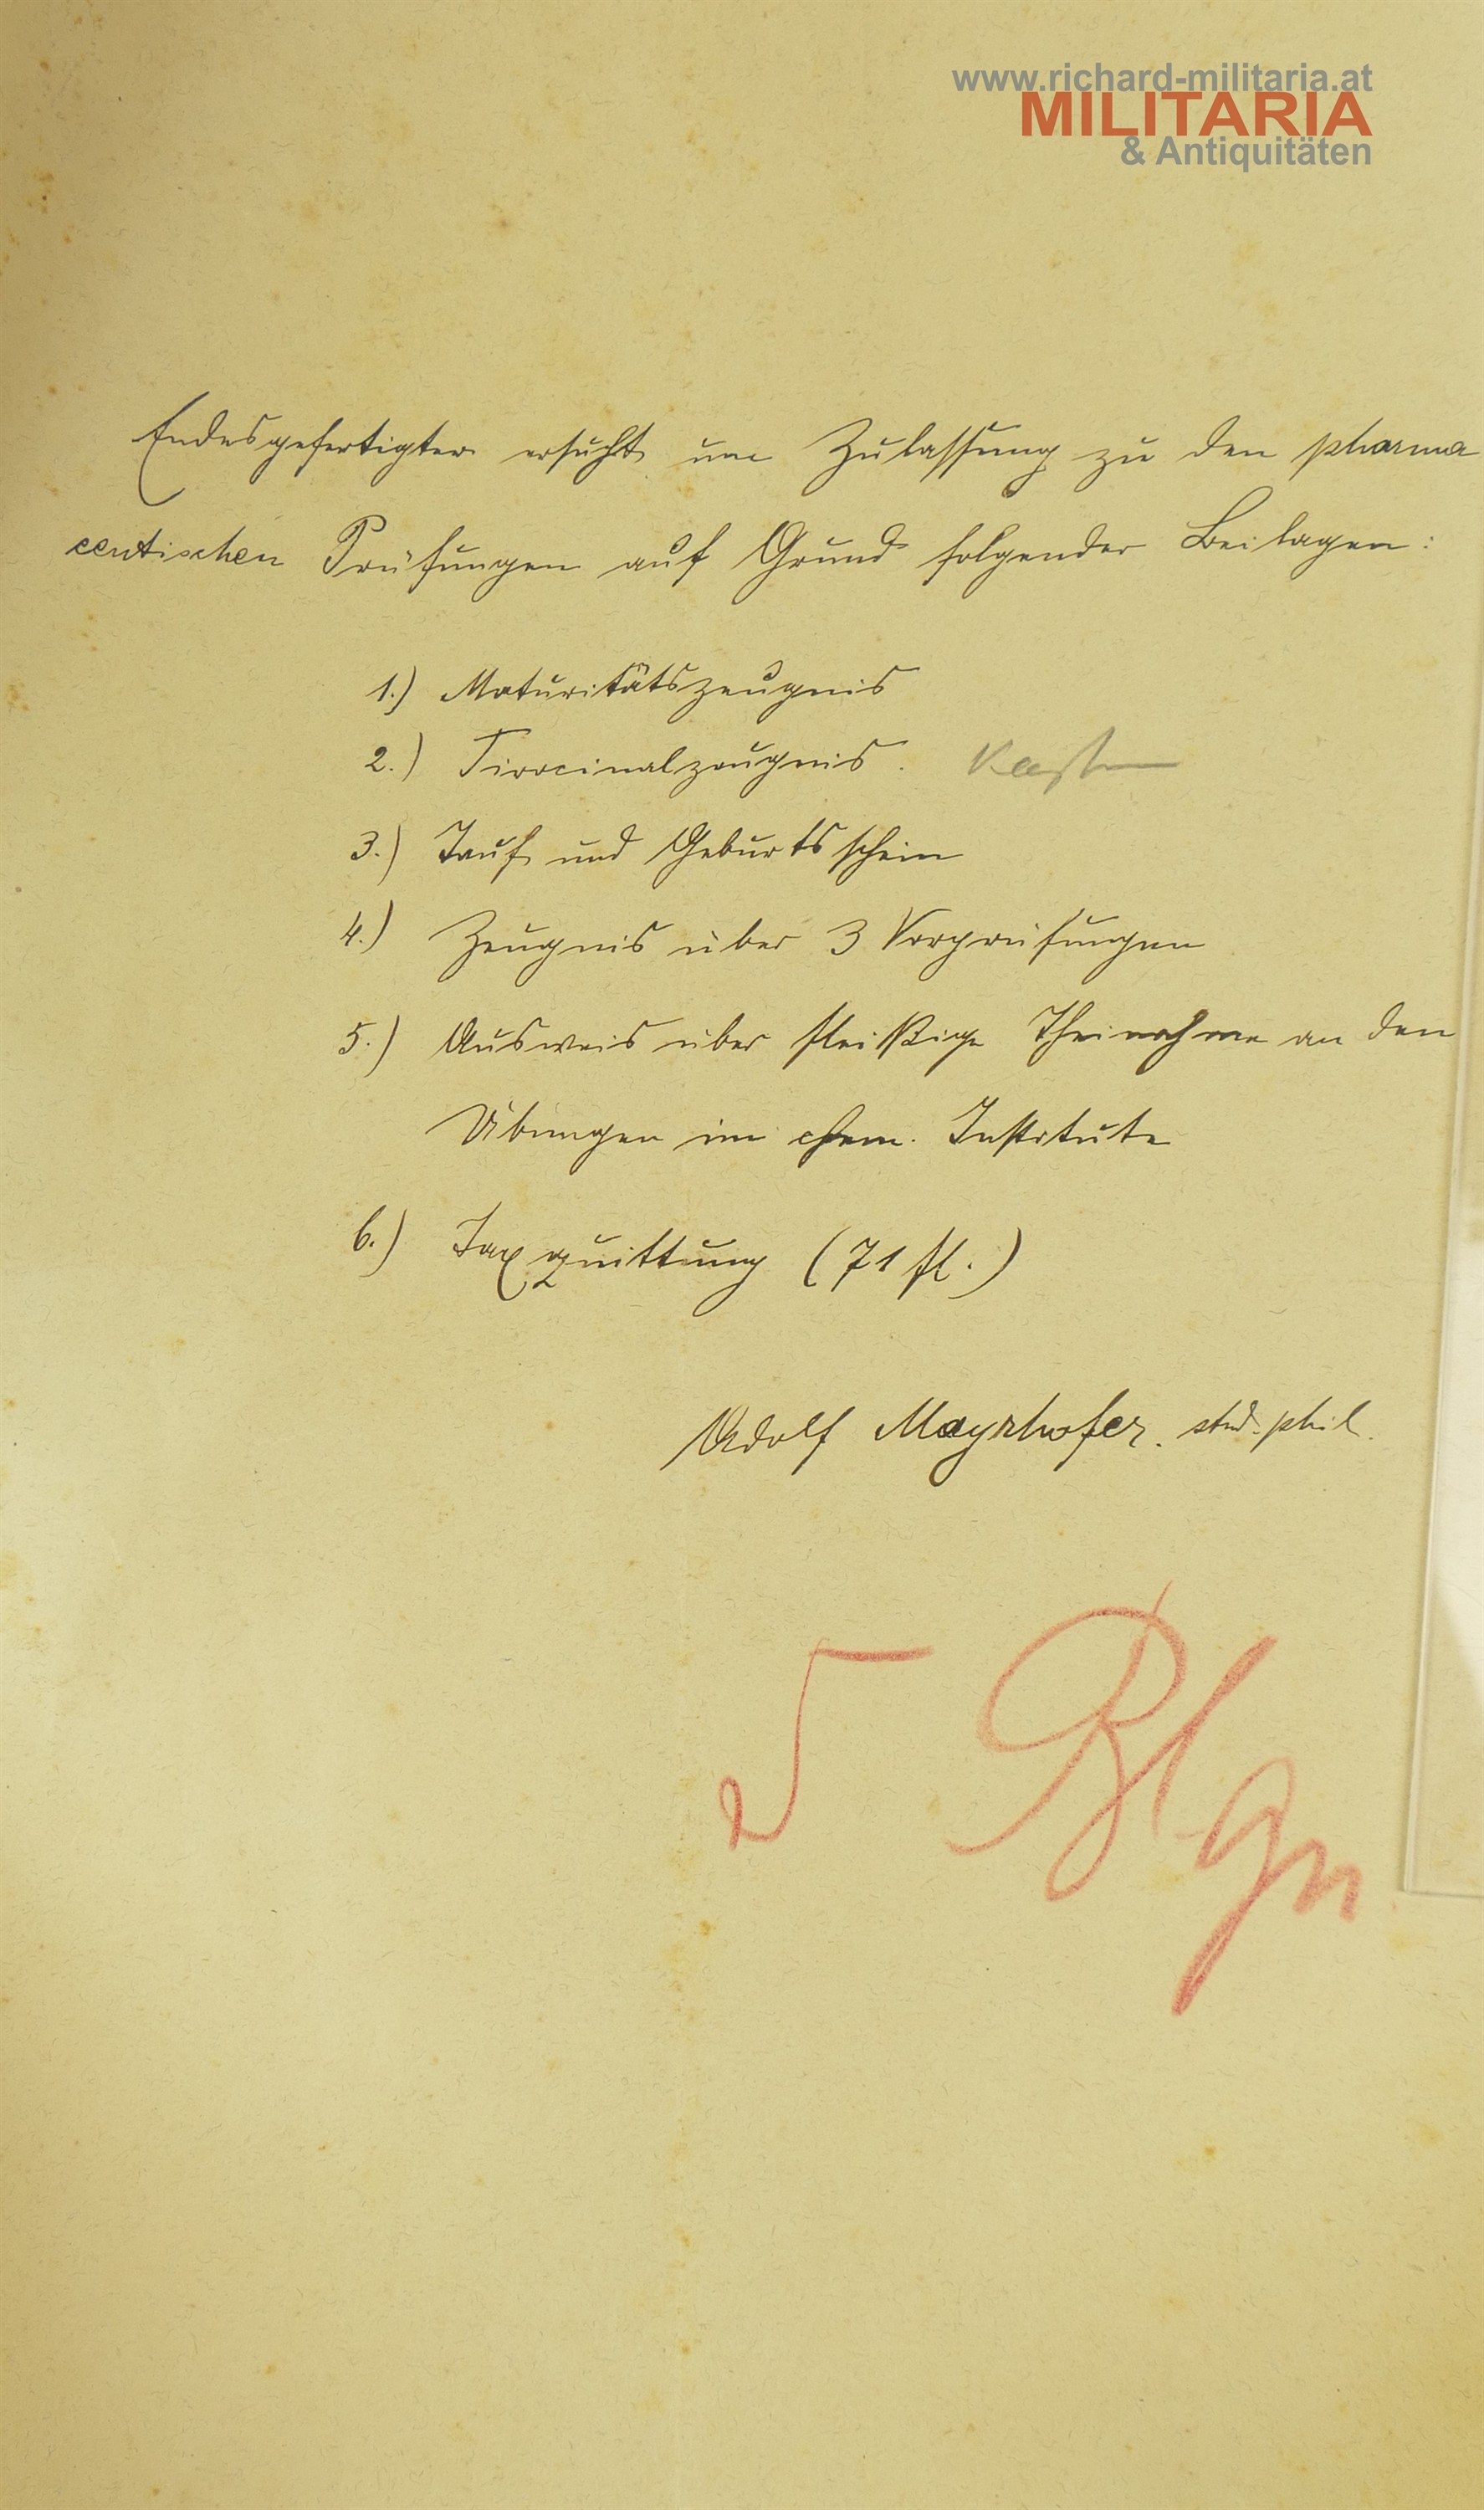 www.richard-militaria.at
MILITARIA
& Antiquitäten
Endesgefertigter ersucht um Zulassung zu den pharma
ceutischen Prüfungen auf Grund folgender Beilagen:
1.) Maturitätszeugnis
2.) Tirocinalzeugnis.
3.) Tauf und Geburtsschein
4.) Zeugnis über 3 Vorprüfungen
5.) Ausweis über fleißige Theinahme an den
Übungen im chem. Institute
6.) Taxquittung (71 fl.)
Adolf Mayrhofer. stud. phil.
5 Blgn